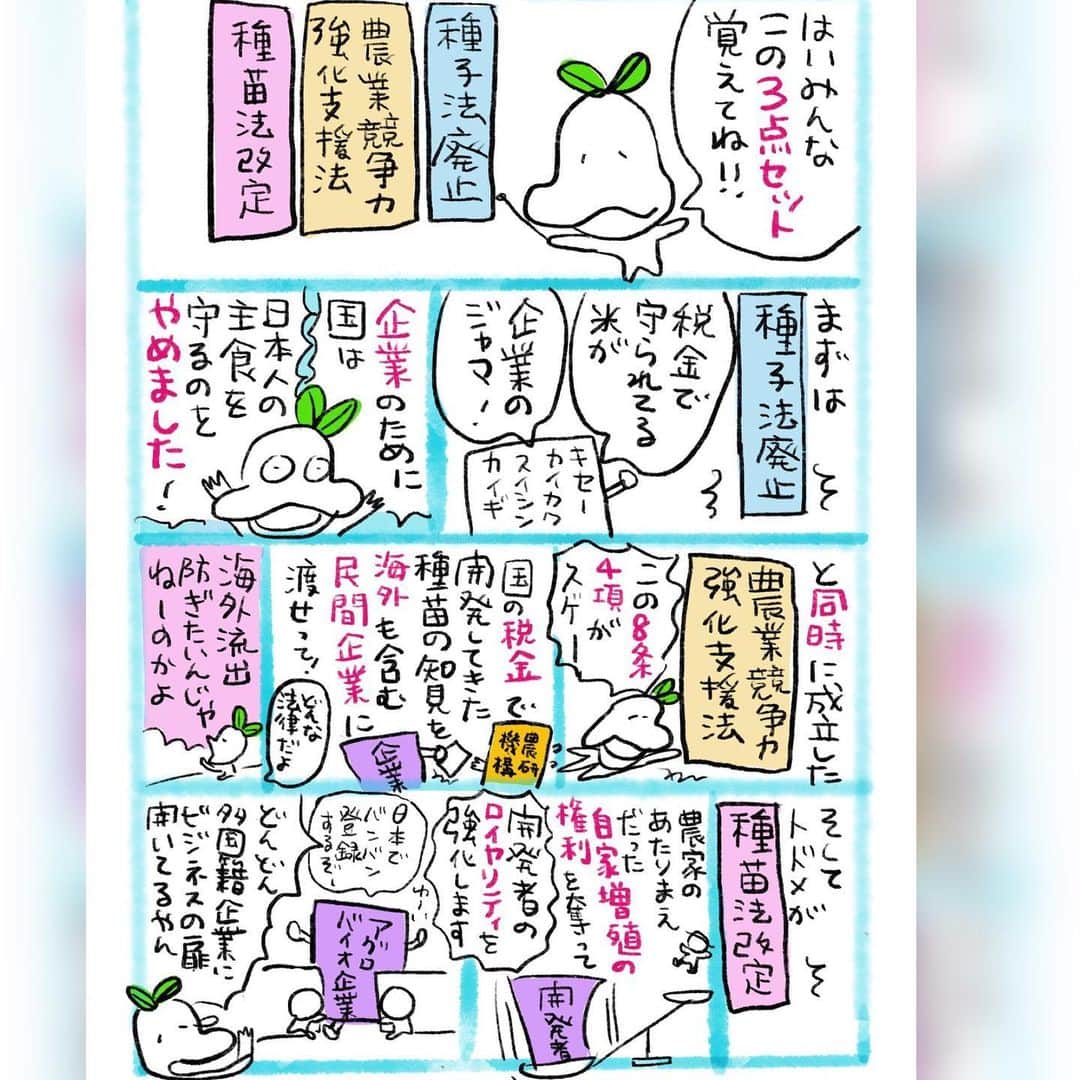 はいみんな
この3点セット
覚えてね!!
種子法廃止
農業競争力
強化支援法
種苗法改定
まずは
種子法廃止
税金で
守られてる
米が
企業の
ジャマ!
キセー
カイカク
スイシン
カイギ
企業のために
国は
日本人の
主食を
守るのを
やめました!
と同時に成立した
農業競争力
強化支援法
この8条
4項が
スゲー
国の税金で
開発してきた
種苗の知見を
海外も含む
民間企業に
渡せって!
農研
機構
企業
どんな
法律だよ
海外流出
防ぎたいんじゃ
ねーのかよ
そして
トドメが
種苗法改定
農家の
あたりまえ
だった
自家増殖の
権利を奪って
開発者の
ロイヤリティを
強化します
開発者
日本で
バンバン
登録
するぞー
アグロ
バイオ企業
どんどん
多国籍企業に
ビジネスの扉
開いてるやん